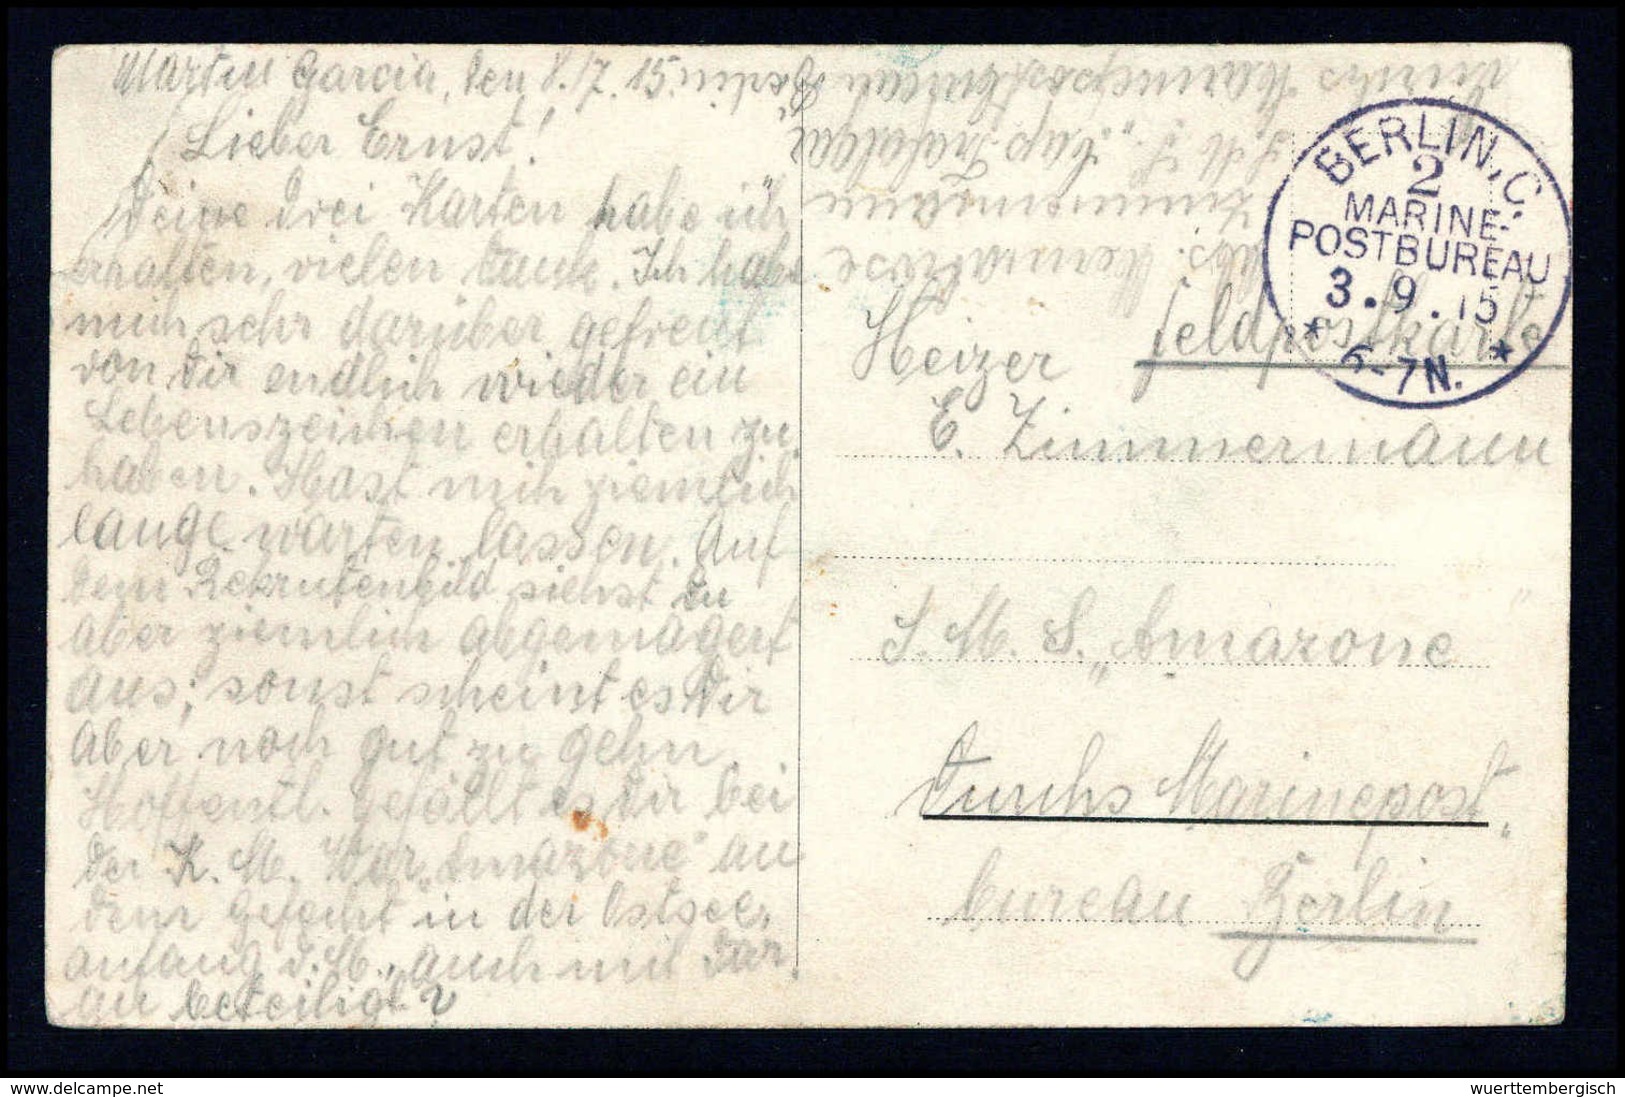 Martin Garcia, den 8./7. 15.
Lieber Ernst!
Deine drei Karten habe ich
erhalten, vielen Dank. Ich habe
mich sehr darüber gefreut
von Dir endlich wieder ein
Lebenszeichen erhalten zu
haben. Hast mich ziemlich
lange warten lassen. Auf
dem Rekrutenbild siehst Du
aber ziemlich abgemagert
aus, sonst scheint es Dir
aber noch gut zu gehn.
Hoffentl. gefällt es Dir bei
der K. M. War „Amazone" an
dem Gefecht in der Ostsee,
anfang d. M., auch mit dar-
an beteiligt?
Abs. Heinr.
Zimmermann
S.M.S. „Cap Trafalgar"
durchs Marinepostbureau Berlin
BERLIN, C.
2
MARINE-
POSTBUREAU
3.9.15
* 6-7N. *
Feldpostkarte
Heizer
E. Zimmermann
S. M. S. „Amazone"
durchs Marinepost-
bureau Berlin
delcampe.net
wuerttembergisch